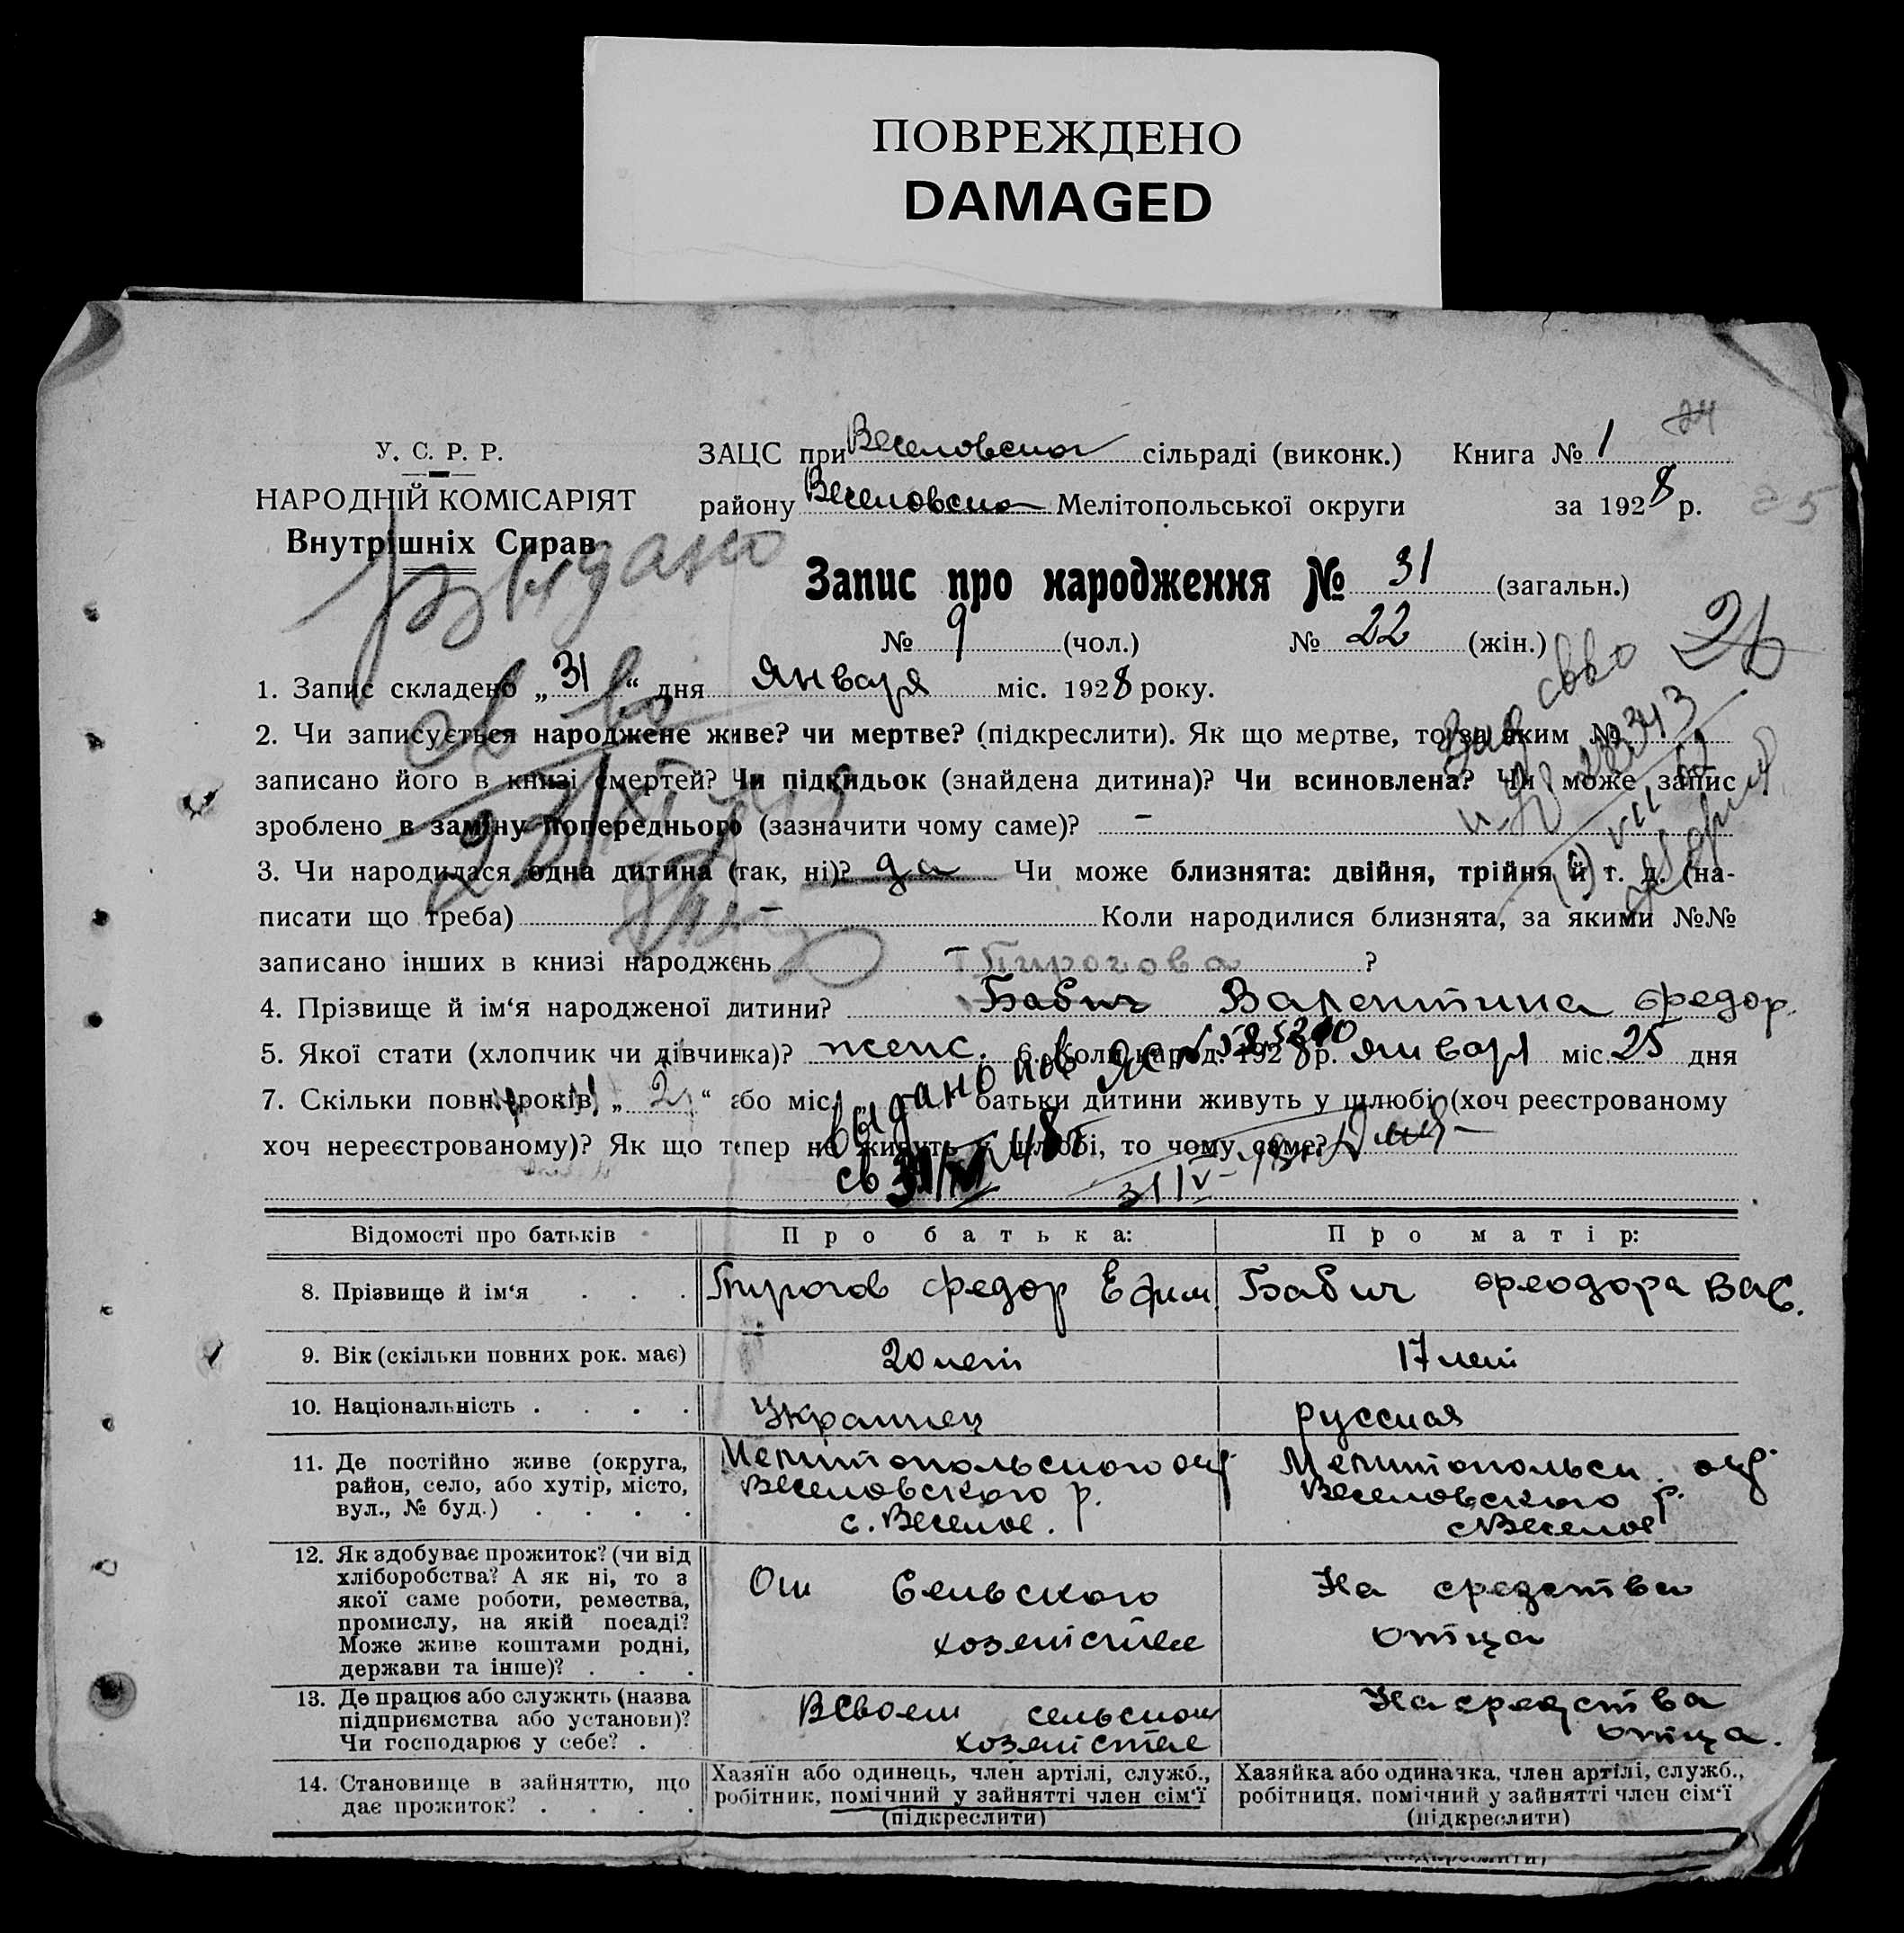 ПОВРЕЖДЕНО
DAMAGED
24
У. С. Р. Р.
НАРОДНІЙ КОМІСАРІЯТ
Внутрішніх Справ
ЗАЦС при Веселовском сільраді (виконк.) Книга № 1
району Веселовском Мелітопольської округи за 1928 р.
25
Выдано
Запис про народження № 31 (загальн.)
№ 9 (чол.) № 22 (жін.)
26
1. Запис складено „31“ дня Января міс. 1928 року.
св во
2. Чи записується народжене живе? чи мертве? (підкреслити). Як що мертве, то за яким №
записано його в книзі смертей? Чи підкидьок (знайдена дитина)? Чи всиновлена? Чи може запис
зроблено в заміну попереднього (зазначити чому саме)? –
3. Чи народилася одна дитина (так, ні)? да Чи може близнята: двійня, трійня й т. д. (на-
писати що треба) – Коли народилися близнята, за якими №№
записано інших в книзі народжень – ?
Пирогова
4. Прізвище й ім‘я народженої дитини? Бабич Валентина Федор.
5. Якої стати (хлопчик чи дівчинка)? женс. 6. Коли народ. 1928 р. января міс. 25 дня
7. Скільки повн. років „2“ або міс. батьки дитини живуть у шлюбі (хоч реєстрованому
хоч нереєстрованому)? Як що тепер не живуть у шлюбі, то чому саме?
выдано пов
св
Відомості про батьків
Про батька:
Про матір:
8. Прізвище й ім‘я . . .
Пирогов Федор Ефим.
Бабич Феодора Вас.
9. Вік (скільки повних рок. має)
20 лет
17 лет
10. Національність . . . .
Украинец
русская
11. Де постійно живе (округа,
район, село, або хутір, місто,
вул., № буд.) . . . .
Мелитопольского окр
Веселовского р.
с. Веселое.
Мелитопольск. окр
Веселовского р.
с Веселое
12. Як здобуває прожиток? (чи від
хліборобства? А як ні, то з
якої саме роботи, ремества,
промислу, на якій посаді?
Може живе коштами родні,
держави та інше)? . . .
От Сельского
хозяйства
На средства
отца
13. Де працює або служить (назва
підприємства або установи)?
Чи господарює у себе? .
В Своем сельском
хозяйстве
На средства
отца.
14. Становище в зайняттю, що
дає прожиток? . . . .
Хазяїн або одинець, член артілі, служб.,
робітник, помічний у зайнятті член сім‘ї
(підкреслити)
Хазяйка або одиначка, член артілі, служб.,
робітниця, помічний у зайнятті член сім‘ї
(підкреслити)